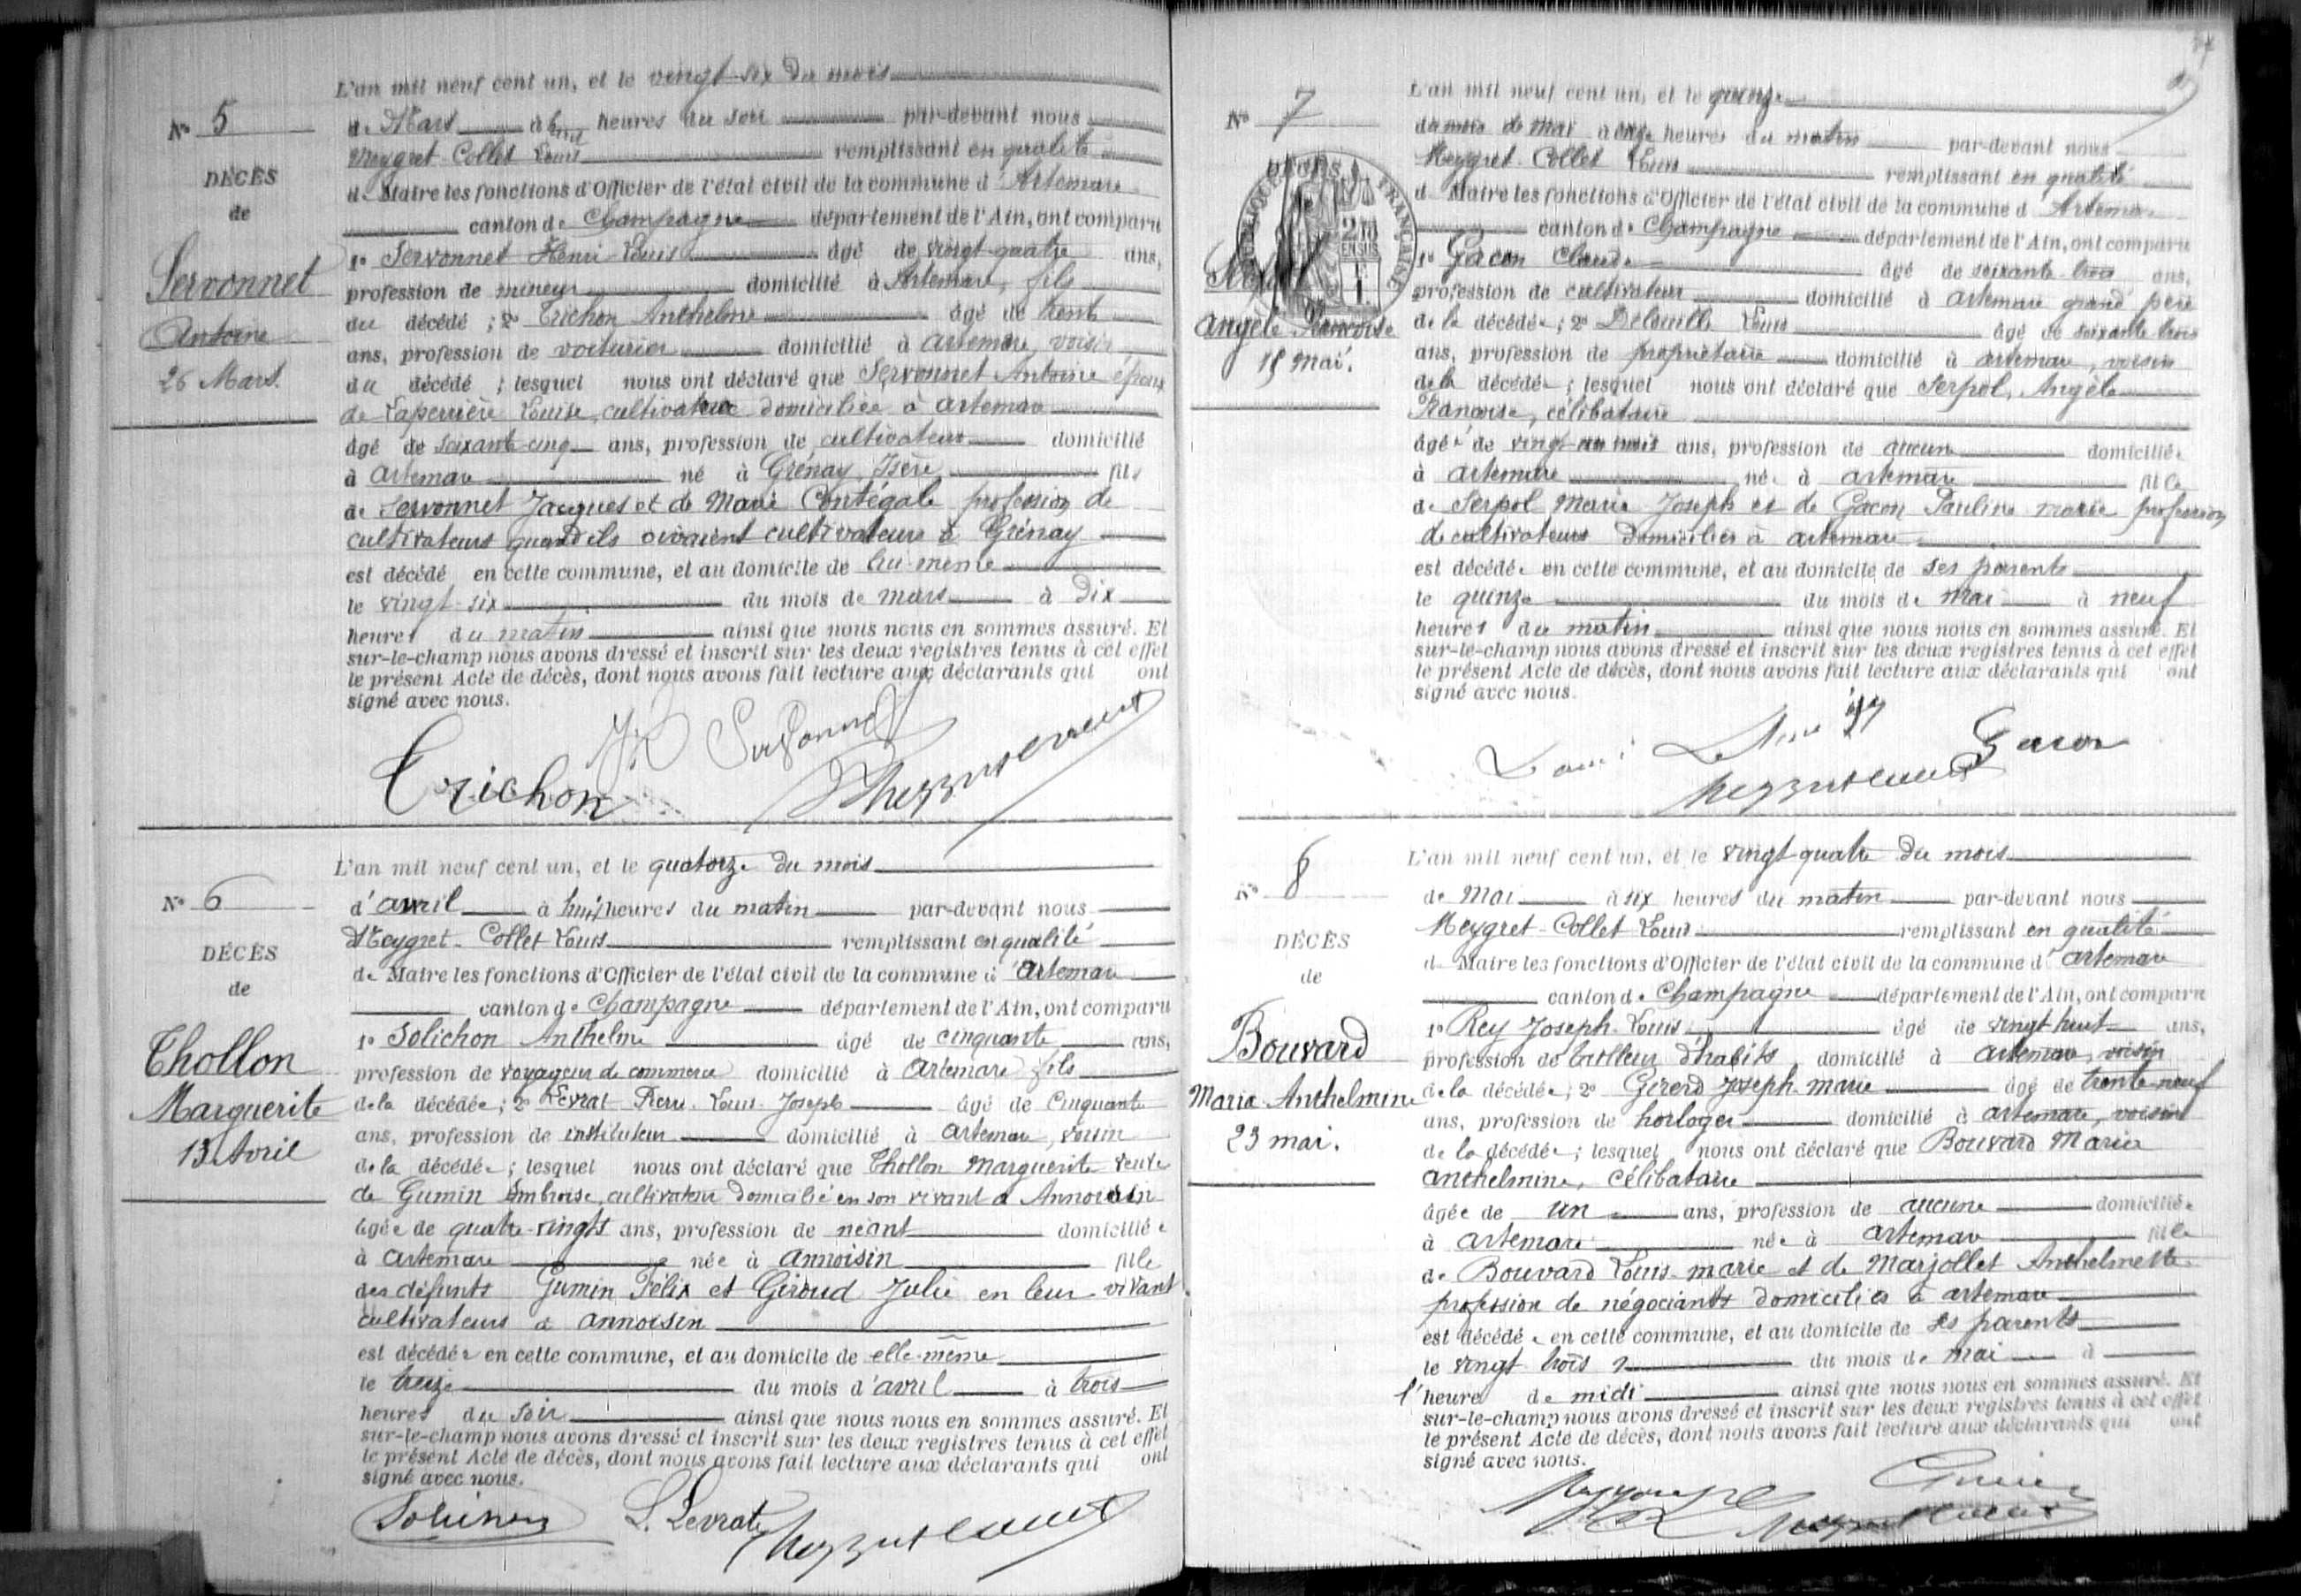 L'an mil neuf cent un, et le vingt-six du mois
N° 5
de Mars à heures du soir par-devant nous
Meygret-Collet Louis remplissant en qualité
DÉCÈS
de Maire les fonctions d'Officier de l'état civil de la commune d'Artemare
de
canton de Champagne département de l'Ain, ont comparu
Servonnet
1° Servonnet Henri Louis âgé de vingt-quatre ans,
profession de mineur domicilié à Artemare, fils
Antoine
du décédé ; 2° Trichon Anthelme âgé de trente
ans, profession de voiturier domicilié à Artemare, voisin
26 Mars.
du décédé ; lesquel nous ont déclaré que Servonnet Antoine époux
de Laperrière Louise, domiciliée à artemare
âgé de soixante-cinq ans, profession de cultivateur domicilié
à artemare né à Grénay, Isère fils
de Servonnet Jacques et de Marie Contégale profession de
cultivateurs quand ils vivaient cultivateurs à Grénay
est décédé en cette commune, et au domicile de lui-même
le vingt-six du mois de mars à Dix
heures du matin ainsi que nous nous en sommes assuré. Et
sur-le-champ nous avons dressé et inscrit sur les deux registres tenus à cet effet
le présent Acte de décès, dont nous avons fait lecture aux déclarants qui ont
signé avec nous.
Servonnet
Trichon
L'an mil neuf cent un, et le quatorze du mois
N° 6
d'avril à huit heures du matin par-devant nous
Meygret-Collet Louis remplissant en qualité
DÉCÈS
de Maire les fonctions d'Officier de l'état civil de la commune d'Artemare
de
canton de Champagne département de l'Ain, ont comparu
1° Solichon Anthelme âgé de cinquante ans,
Thollon
profession de voyageur de commerce domicilié à Artemare fils
Marguerite
de la décédée ; 2° Levrat Pierre Louis Joseph âgé de Cinquante
ans, profession de instituteur domicilié à artemare, voisin
13 Avril
de la décédée ; lesquel nous ont déclaré que Thollon Marguerite veuve
de Gumin Ambroise, cultivateur domicilié en son vivant à Annoisin
âgée de quatre-vingts ans, profession de néant domiciliée
à artemare née à annoisin fille
des défunts Gumin Félix et Giroud Julie en leur vivant
cultivateurs à annoisin
est décédée en cette commune, et au domicile de elle-même
le treize du mois d'avril à trois
heures du soir ainsi que nous nous en sommes assuré. Et
sur-le-champ nous avons dressé et inscrit sur les deux registres tenus à cet effet
le présent Acte de décès, dont nous avons fait lecture aux déclarants qui ont
signé avec nous.
L. Levrat
L'an mil neuf cent un, et le quinze
N° 7
du mois de mai à onze heures du matin par-devant nous
Meygret-Collet Louis remplissant en qualité
de Maire les fonctions d'Officier de l'état civil de la commune d'Artemare
canton de Champagne département de l'Ain, ont comparu
1° Gacon Claude âgé de soixante-trois ans,
profession de cultivateur domicilié à artemare grand père
Angèle Françoise
de la décédée ; 2° Louis âgé de soixante-trois
ans, profession de propriétaire domicilié à artemare, voisin
15 mai.
de la décédée ; lesquel nous ont déclaré que Serpol, Angèle
Françoise, célibataire
âgée de vingt-un mois ans, profession de aucune domiciliée
à artemare née à artemare fille
de Serpol Marie Joseph et de Gacon Pauline marie profession
de cultivateurs domiciliés à artemare
est décédée en cette commune, et au domicile de ses parents
le quinze du mois de mai à neuf
heures du matin ainsi que nous nous en sommes assuré. Et
sur-le-champ nous avons dressé et inscrit sur les deux registres tenus à cet effet
le présent Acte de décès, dont nous avons fait lecture aux déclarants qui ont
signé avec nous.
Gacon
L'an mil neuf cent un, et le vingt-quatre du mois
N° 8
de Mai à six heures du matin par-devant nous
Meygret-Collet Louis remplissant en qualité
DÉCÈS
de Maire les fonctions d'Officier de l'état civil de la commune d'artemare
de
canton de Champagne département de l'Ain, ont comparu
1° Rey Joseph-Louis âgé de vingt huit ans,
Bouvard
profession de tailleur d'habits domicilié à artemare, voisin
Maria Anthelmine
de la décédée ; 2° Girerd Joseph-marie âgé de trente-neuf
ans, profession de horloger domicilié à artemare, voisin
23 mai.
de la décédée ; lesquel nous ont déclaré que Bouvard Maria
Anthelmine, Célibataire
âgée de un ans, profession de aucune domiciliée
à artemare née à artemare fille
de Bouvard Louis-marie et de Marjollet Anthelmette
profession de négociants domiciliés à artemare
est décédée en cette commune, et au domicile de ses parents
le vingt-trois du mois de mai à
l'heure de midi ainsi que nous nous en sommes assuré. Et
sur-le-champ nous avons dressé et inscrit sur les deux registres tenus à cet effet
le présent Acte de décès, dont nous avons fait lecture aux déclarants qui ont
signé avec nous.